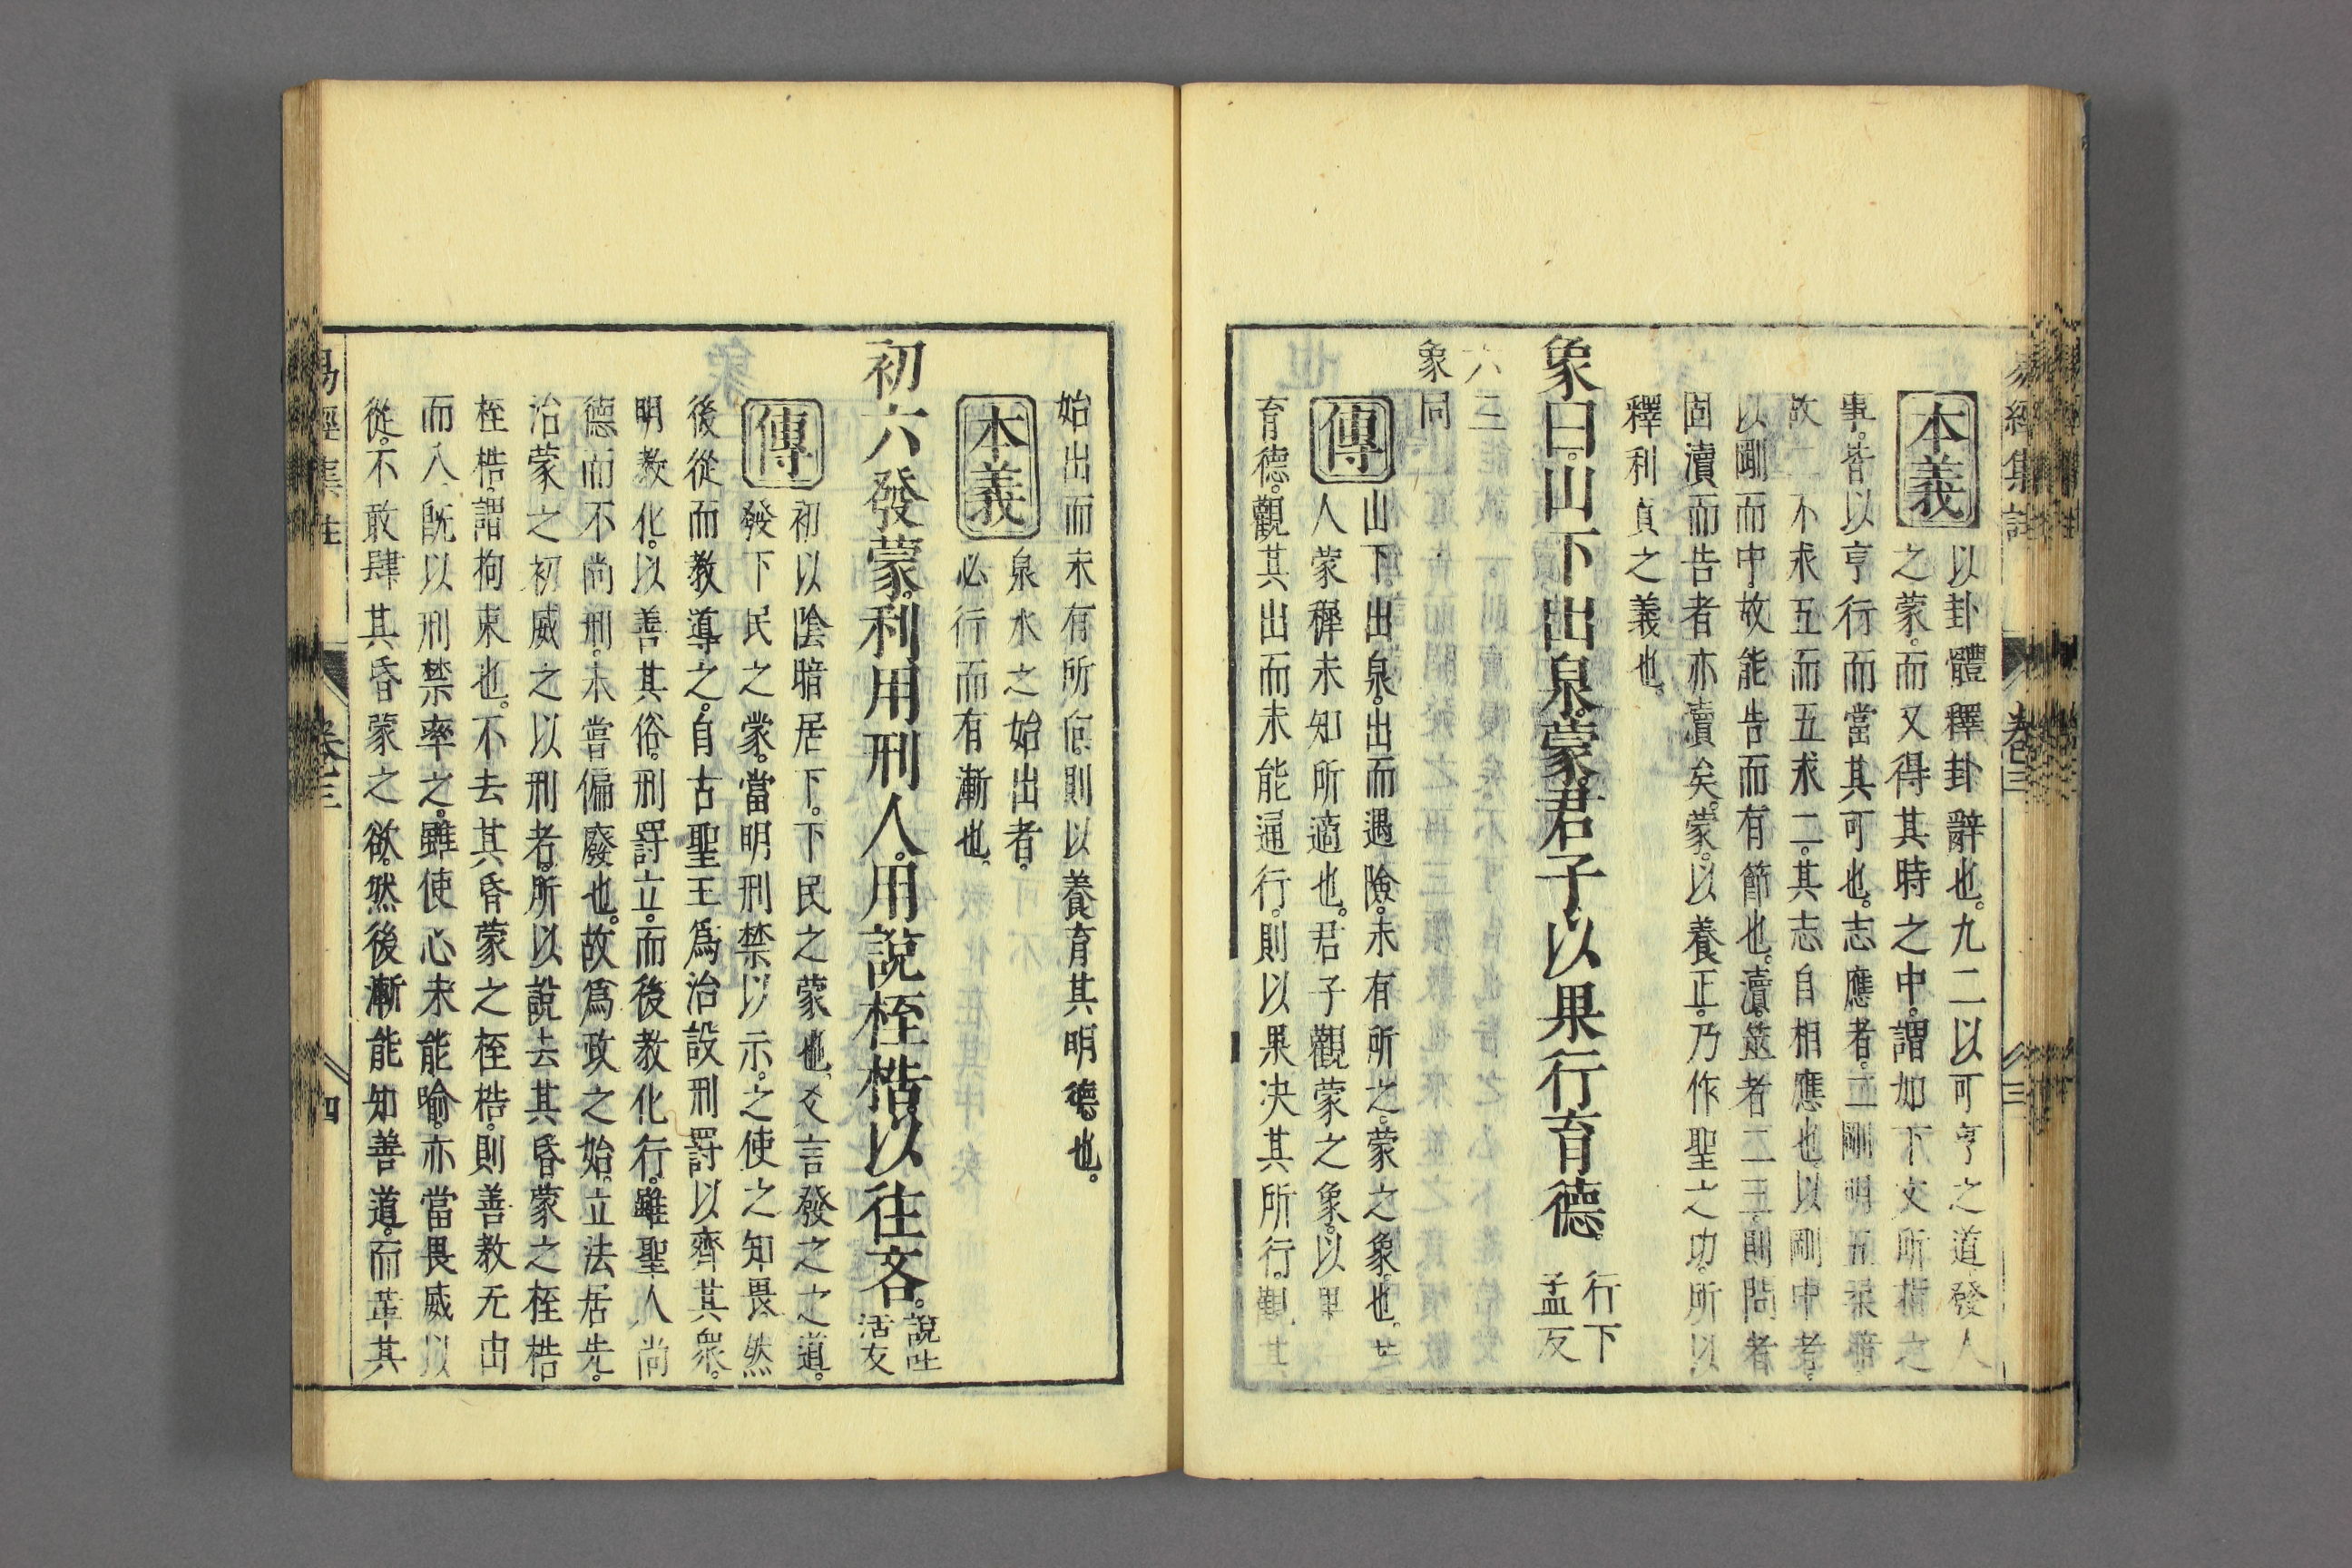 易經集註 卷三 三
本義 以卦體釋卦辭也。九二以可亨之道發人
之蒙。而又得其時之中。謂如下文所指之
事。皆以亨行而當其可也。志應者。二剛明五柔暗
故二不求五而五求二。其志自相應也。以剛中者。
以剛而中。故能告而有節也。瀆。筮者二三。則問者
固瀆而告者亦瀆矣。蒙。以養正。乃作聖之功。所以
釋利貞之義也。
象曰。山下出泉。蒙。君子以果行育德。 行下
孟反
六三
象同
傳 山下。出泉。出而遇險。未有所之。蒙之象。也。
人蒙穉未知所適也。君子觀蒙之象。以果
育德。觀其出而未能通行。則以果决其所行。觀其
始出而未有所向。則以養育其明德。也。
本義 泉水之始出者。
必行而有漸也。
初六發蒙。利用刑人。用說桎梏。以往吝。 說吐
活反
傳 初以陰暗居下。下民之蒙也。爻言發之之道。
發下民之蒙。當明刑禁以示。之使之知畏。然
後從而教導之。自古聖王爲治。設刑罰以齊其衆。
明教化。以善其俗。刑罰立。而後教化行。雖聖人尚
德而不尚刑。未嘗偏廢也。故爲政之始。立法居先。
治蒙之初。威之以刑者。所以說去其昏蒙之桎梏
桎梏。謂拘束也。不去其昏蒙之桎梏。則善教无由
而入。既以刑禁率之。雖使心未能喻。亦當畏威以
從。不敢肆其昏蒙之欲。然後漸能知善道。而革其
易經集註 卷三 四